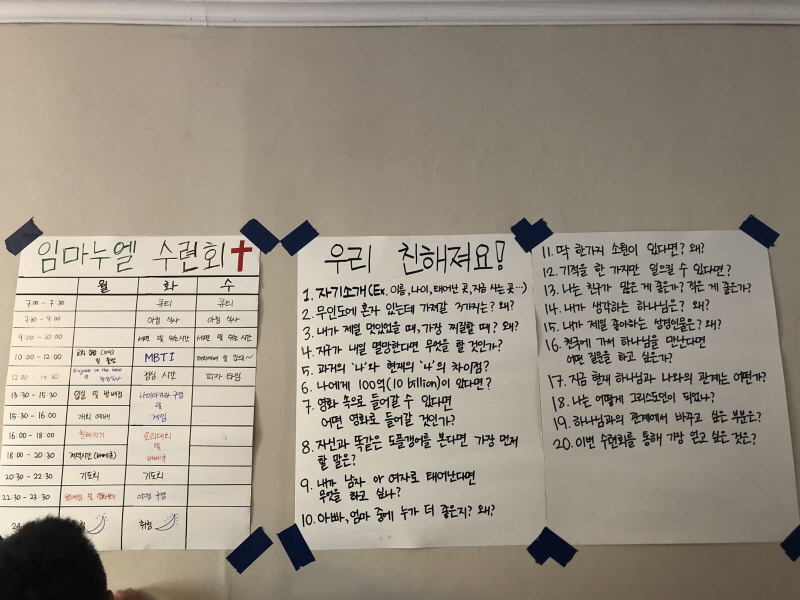 임마누엘 수련회
월 화 수
7:00 - 7:30 큐티 큐티
7:30 - 9:00 아침 식사 아침 식사
9:00 - 10:00 세면 및 쉬는시간 세면 및 쉬는시간
10:00 - 12:00 교회 및 MBTI
12:00 - 점심 시간 피자 타임
13:30 - 15:30 입실 및 방배정 나이아가라 구경
및
15:30 - 16:00 개회 예배 게임
16:00 - 18:00 친해지기 요리대회
및
18:00 - 20:30 저녁시간 (바베큐) 바베큐
20:30 - 22:30 기도회 기도회
22:30 - 23:30 보드게임 및 야경 구경
24 취침
우리 친해져요!
1. 자기소개 (Ex. 이름, 나이, 태어난 곳, 지금 사는 곳...)
2. 무인도에 혼자 있는데 가져갈 3가지는? 왜?
3. 내가 제일 멋있었을 때, 가장 찌질할 때? 왜?
4. 지구가 내일 멸망한다면 무엇을 할 것인가?
5. 과거의 '나'와 현재의 '나'의 차이점?
6. 나에게 100억(10 billion)이 있다면?
7. 영화 속으로 들어갈 수 있다면
어떤 영화로 들어갈 것인가?
8. 자신과 똑같은 도플갱어를 본다면 가장 먼저
할 말은?
9. 내가 남자 or 여자로 태어난다면
무엇을 하고 싶나?
10. 아빠, 엄마 중에 누가 더 좋은지? 왜?
11. 딱 한가지 소원이 있다면? 왜?
12. 기적을 한 가지만 일으킬 수 있다면?
13. 나는 친구가 많은 게 좋은가? 적은 게 좋은가?
14. 내가 생각하는 하나님은? 왜?
15. 내가 제일 좋아하는 성경인물은? 왜?
16. 천국에 가서 하나님을 만난다면
어떤 질문을 하고 싶은가?
17. 지금 현재 하나님과 나와의 관계는 어떤가?
18. 나는 어떻게 그리스도인이 되었나?
19. 하나님과의 관계에서 바꾸고 싶은 부분은?
20. 이번 수련회를 통해 가장 얻고 싶은 것은?